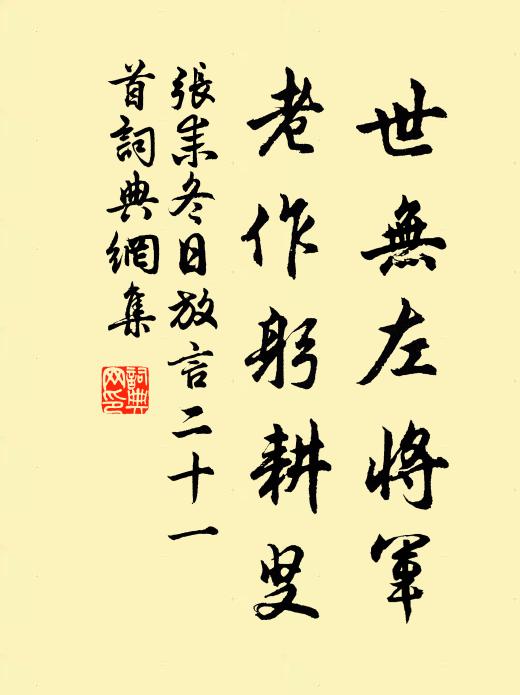 世無左將軍
老作躬耕叟
張耒冬日放言二十一
首詞典網集
詞典網印